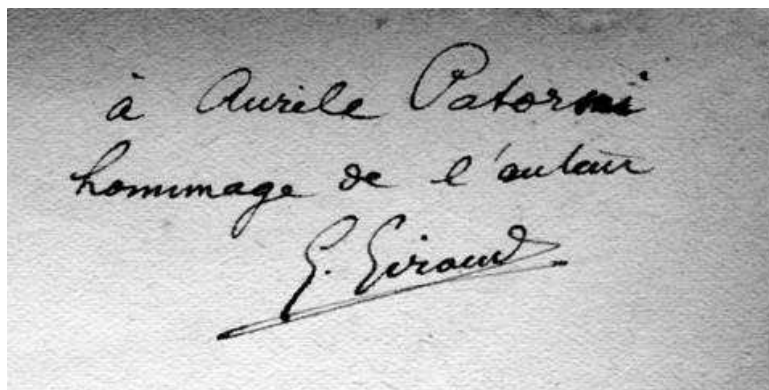 à Aurèle Patorni
hommage de l'auteur
G. Giraud